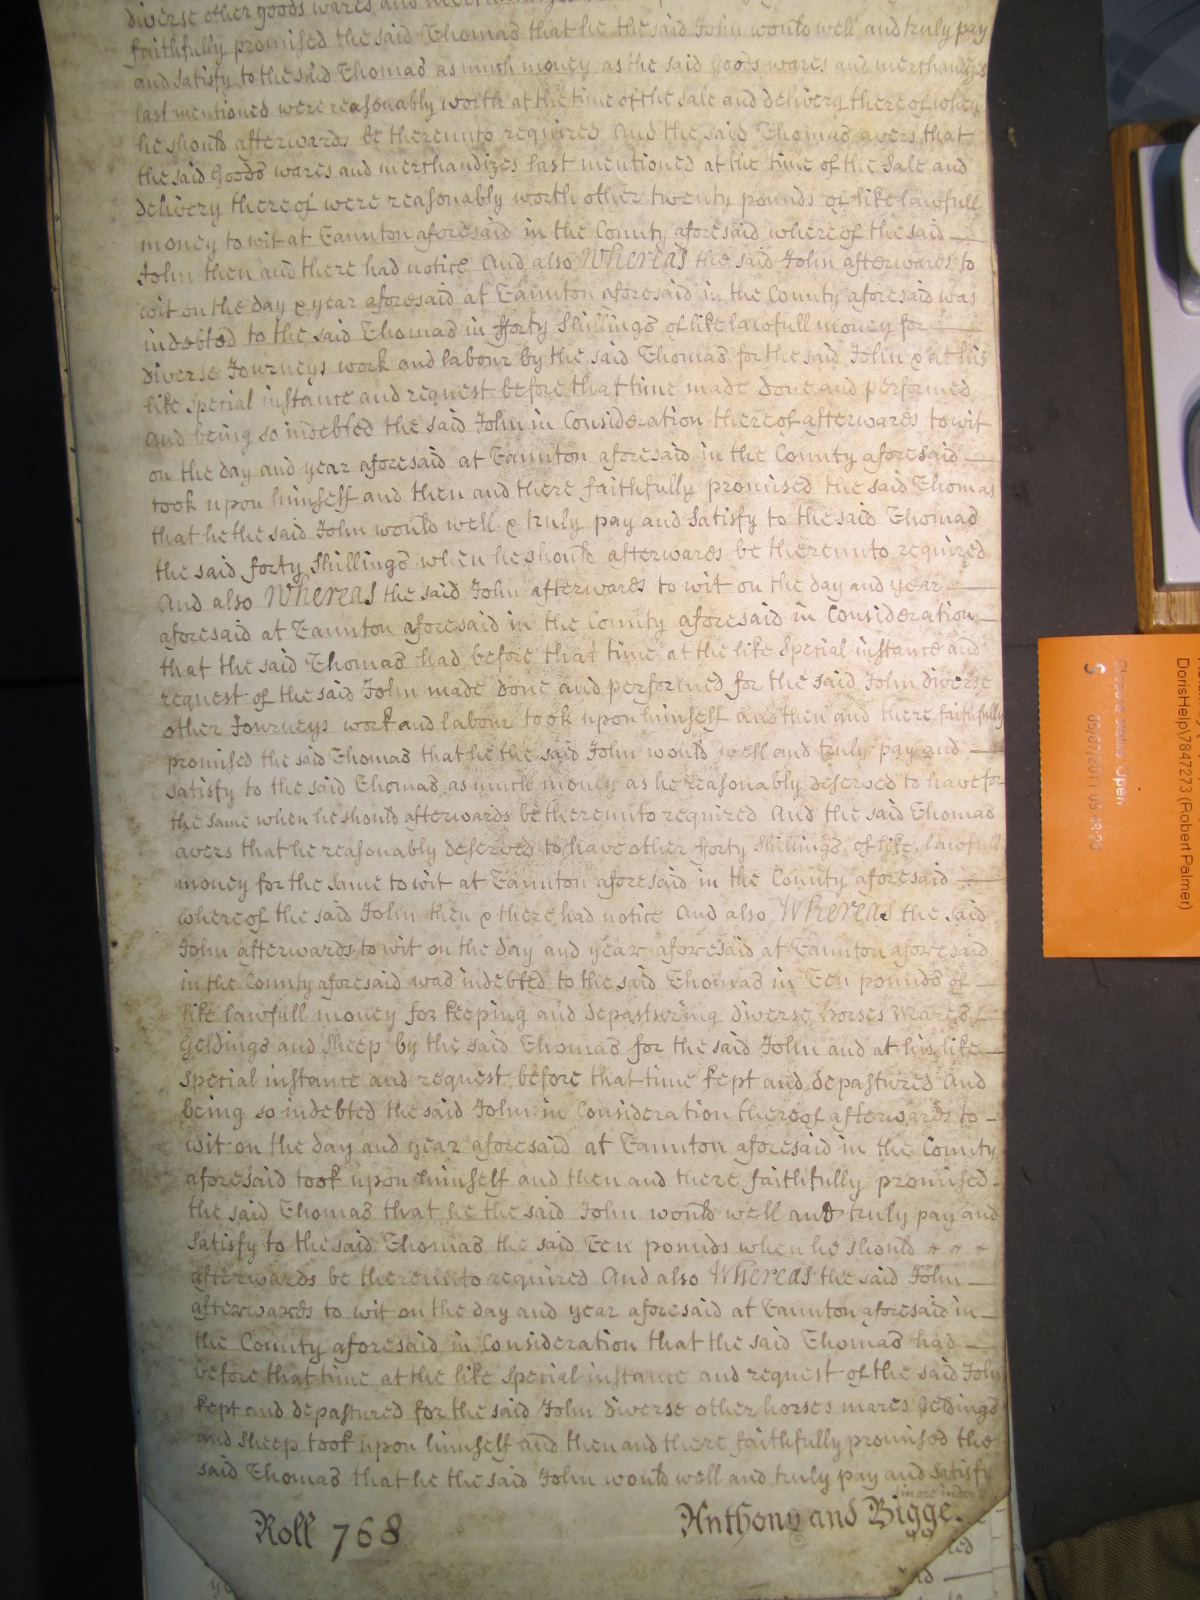 diverse other goods wares and
faithfully promised the said Thomas that he the said John would well and truly pay
and satisfy to the said Thomas as much money as the said Goods wares and merchandizes
last mentioned were reasonably worth at the time of the sale and delivery thereof when
he should afterwards be thereunto required And the said Thomas avers that
the said Goods wares and merchandizes last mentioned at the time of the Sale and
delivery thereof were reasonably worth other twenty pounds of like lawfull
money to wit at Taunton aforesaid in the County aforesaid whereof the said
John then and there had notice And also Whereas the said John afterwards to
wit on the day & year aforesaid at Taunton aforesaid in the County aforesaid was
indebted to the said Thomas in fforty Shillings of like lawfull money for
diverse Journeys work and labour by the said Thomas for the said John & at his
like Special instance and request before that time made done and performed
And being so indebted the said John in Consideration thereof afterwards to wit
on the day and year aforesaid at Taunton aforesaid in the County aforesaid
took upon himself and then and there faithfully promised the said Thomas
that he the said John would well & truly pay and Satisfy to the said Thomas
the said forty Shillings when he should afterwards be thereunto required
And also Whereas the said John afterwards to wit on the day and year
aforesaid at Taunton aforesaid in the County aforesaid in Consideration
that the said Thomas had before that time at the like Special instance and
request of the said John made done and performed for the said John diverse
other Journeys work and labour took upon himself and then and there faithfully
promised the said Thomas that he the said John would well and truly pay and
satisfy to the said Thomas as much money as he reasonably deserved to have for
the same when he should afterwards be thereunto required And the said Thomas
avers that he reasonably deserved to have other fforty Shillings of like lawfull
money for the same to wit at Taunton aforesaid in the County aforesaid
whereof the said John then & there had notice And also Whereas the said
John afterwards to wit on the day and year aforesaid at Taunton aforesaid
in the County aforesaid was indebted to the said Thomas in Ten pounds of
like lawfull money for keeping and depasturing diverse horses Meares
Geldings and Sheep by the said Thomas for the said John and at his like
Special instance and request before that time kept and depastured And
being so indebted the said John in Consideration thereof afterwards to
wit on the day and year aforesaid at Taunton aforesaid in the County
aforesaid took upon himself and then and there faithfully promised
the said Thomas that he the said John would well and truly pay and
Satisfy to the said Thomas the said Ten pounds when he should
afterwards be thereunto required And also Whereas the said John
afterwards to wit on the day and year aforesaid at Taunton aforesaid in
the County aforesaid in Consideration that the said Thomas had
before that time at the like Special instance and request of the said John
kept and depastured for the said John diverse other horses mares Geldings
and Sheep took upon himself and then and there faithfully promised the
said Thomas that he the said John would well and truly pay and satisfy
Roll 768
Anthony and Bigge
DorisHelp\7847273 (Robert Palmer)